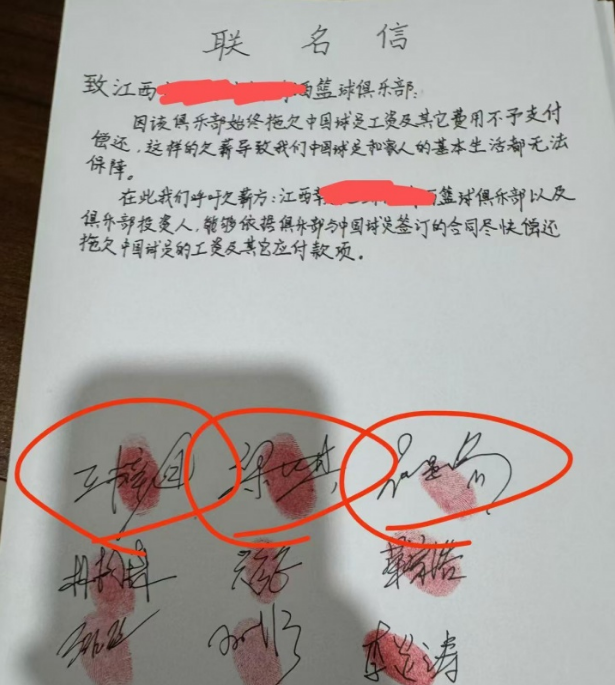 联名信
致江西 西篮球俱乐部:
因该俱乐部始终拖欠中国球员工资及其它费用不予支付
偿还,这样的欠薪导致我们中国球员和家人的基本生活都无法
保障。
在此我们呼吁欠薪方:江西 西篮球俱乐部以及
俱乐部投资人,能够依据俱乐部与中国球员签订的合同尽快偿还
拖欠中国球员的工资及其它应付款项。